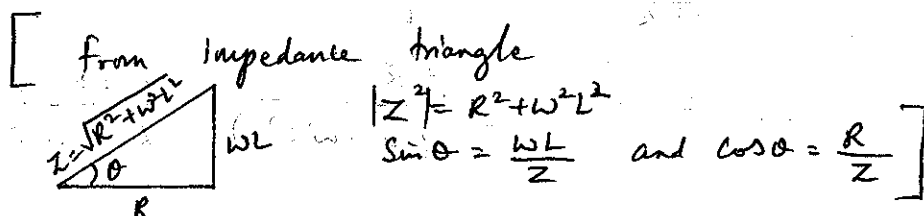 [ from Impedance triangle
Z=√R²+ω²L²
|Z²|= R²+ω²L²
ωL
θ
Sinθ = ωL/Z and cosθ = R/Z ]
R